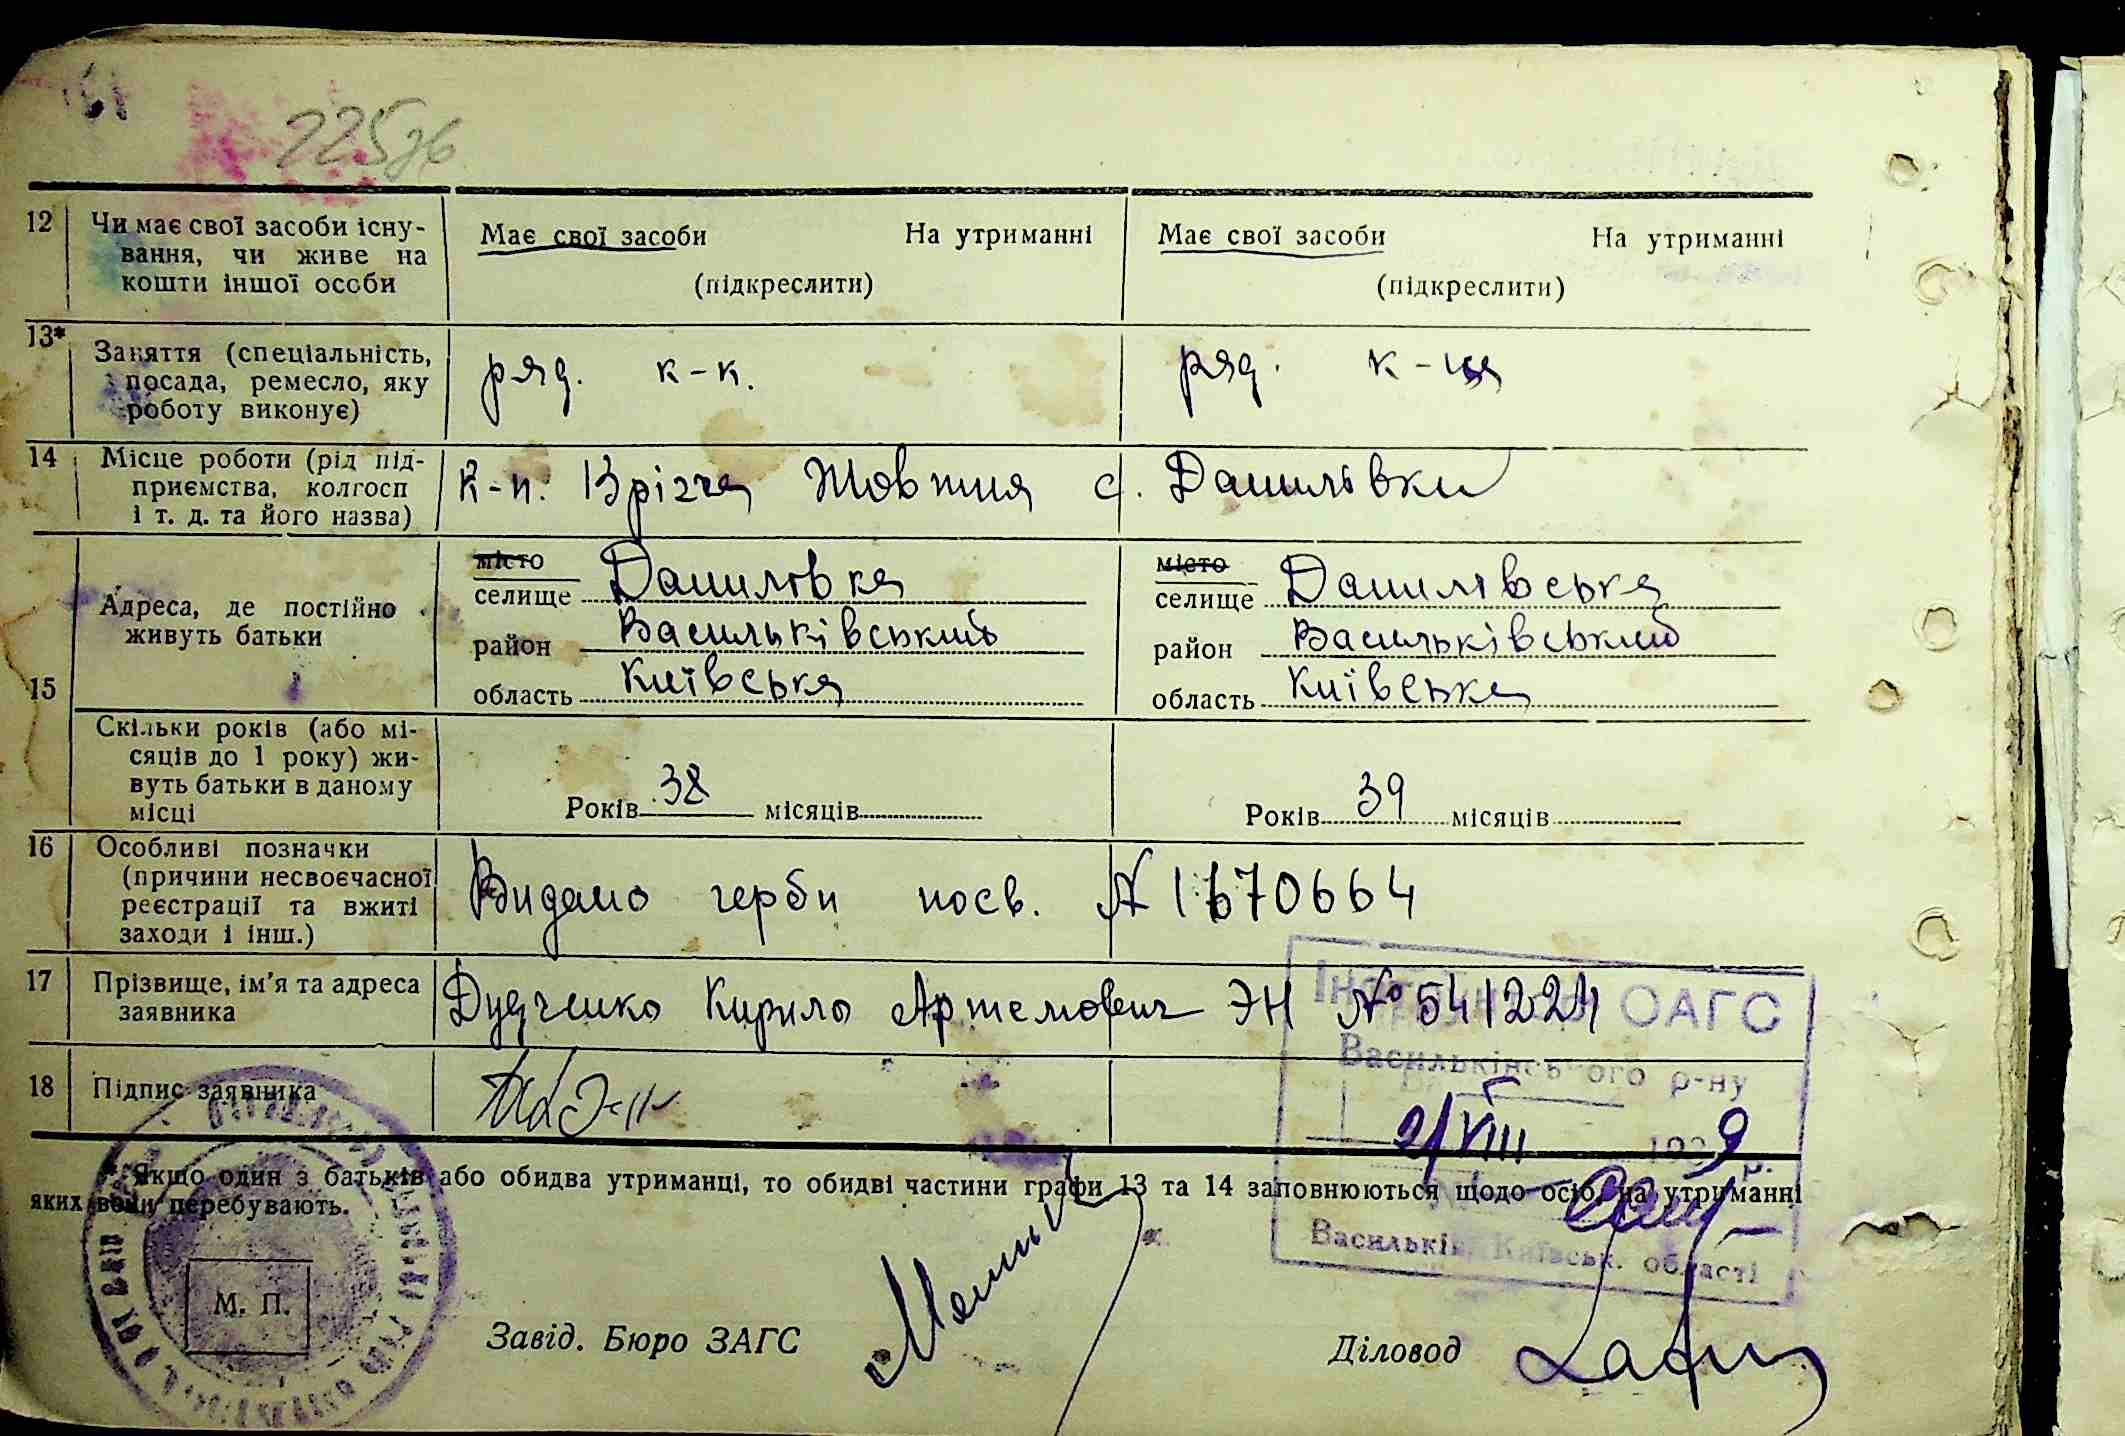 225зв
12 Чи має свої засоби існу-
вання, чи живе на
кошти іншої особи
Має свої засоби На утриманні
(підкреслити)
Має свої засоби На утриманні
(підкреслити)
13* Заняття (спеціальність,
посада, ремесло, яку
роботу виконує)
ряд. к-к.
ряд. к-ця
14 Місце роботи (рід під-
приємства, колгосп
і т. д. та його назва)
К-п. Жовтня с. Данилівки
15 Адреса, де постійно
живуть батьки
місто
селище Данилівка
район Васильківський
область Київська
місто
селище Данилівська
район Васильківський
область Київська
Скільки років (або мі-
сяців до 1 року) жи-
вуть батьки в даному
місці
Років 38 місяців
Років 39 місяців
16 Особливі позначки
(причини несвоєчасної
реєстрації та вжиті
заходи і інш.)
Видано герби посв. № 1670664
17 Прізвище, ім'я та адреса
заявника
Дудченко Кирило Артемович ЭН № 541224
18 Підпис заявника
ОАГС
Васильківського р-ну
2/VIII 1939 р.
Васильків, Київськ. області
* Якщо один з батьків або обидва утриманці, то обидві частини графи 13 та 14 заповнюються щодо осіб, на утриманні
яких вони перебувають.
М. П.
Завід. Бюро ЗАГС
Діловод